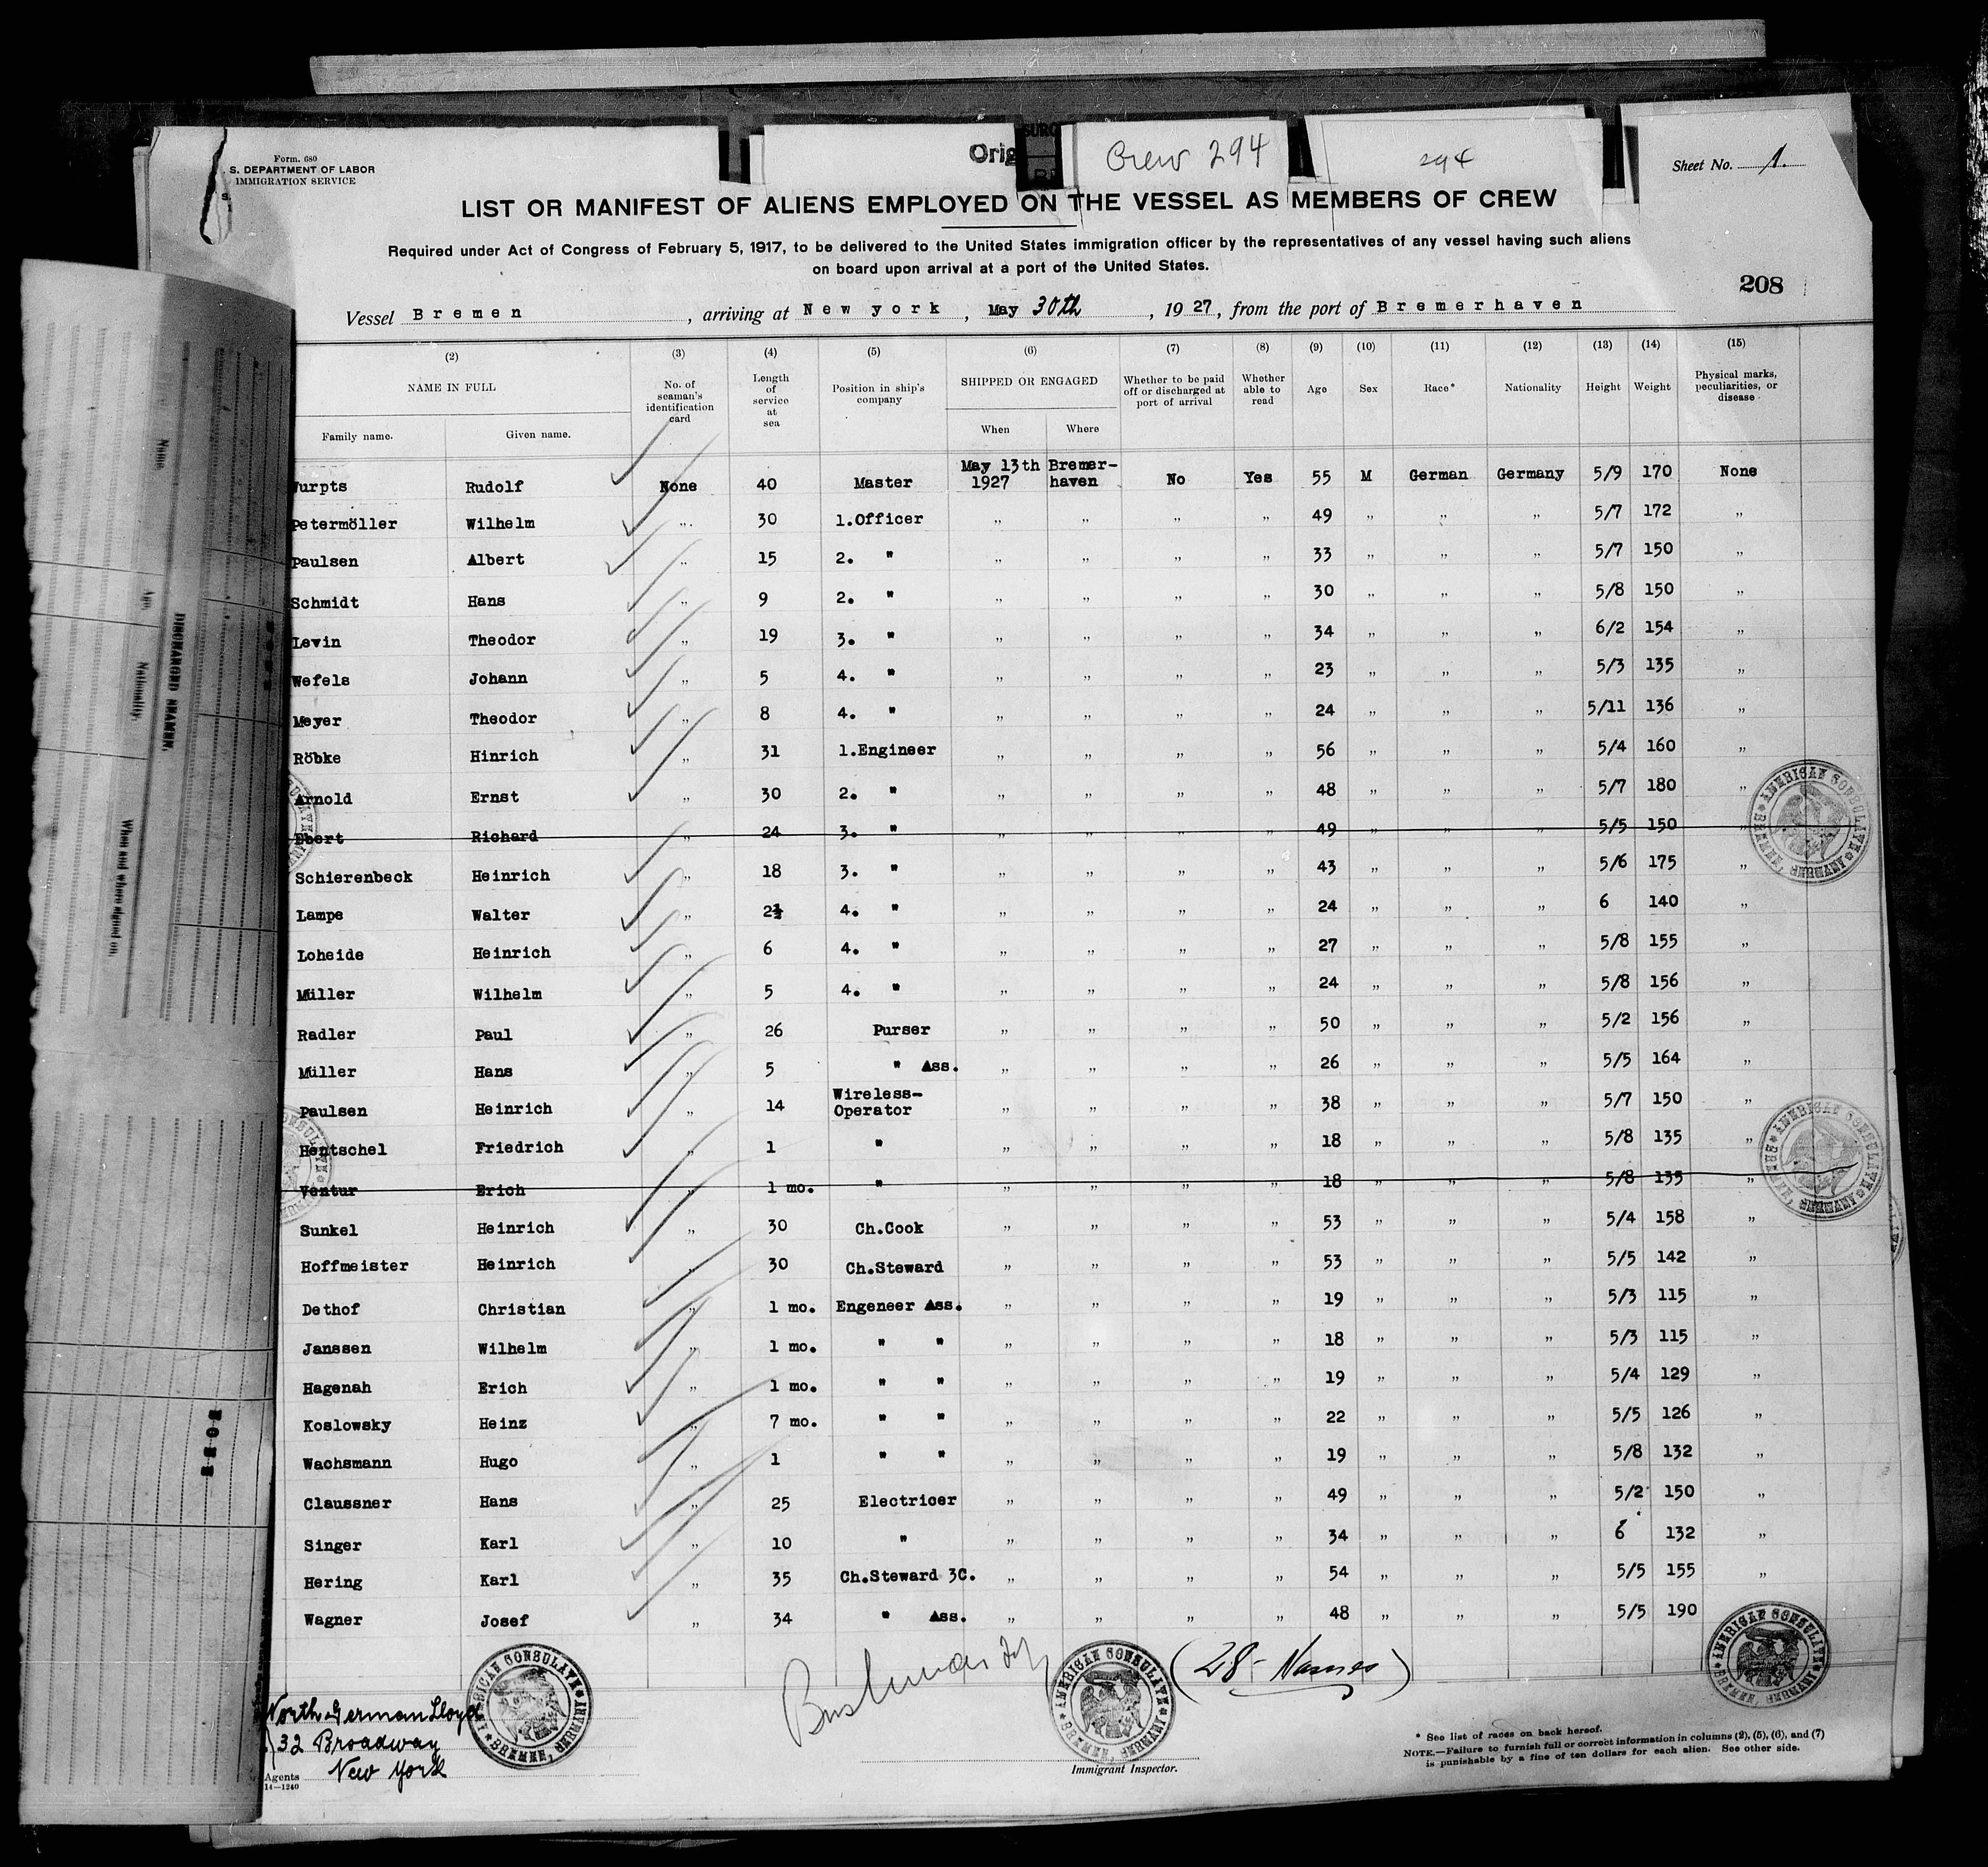 Form. 680
S. DEPARTMENT OF LABOR
IMMIGRATION SERVICE
Orig
SURG
Crew 294
294
Sheet No. 1.
LIST OR MANIFEST OF ALIENS EMPLOYED ON THE VESSEL AS MEMBERS OF CREW
Required under Act of Congress of February 5, 1917, to be delivered to the United States immigration officer by the representatives of any vessel having such aliens
on board upon arrival at a port of the United States.
208
Vessel Bremen, arriving at New york, May 30th, 1927, from the port of Bremerhaven
(2) (3) (4) (5) (6) (7) (8) (9) (10) (11) (12) (13) (14) (15)
NAME IN FULL
Family name. Given name.
No. of seaman's identification card
Length of service at sea
Position in ship's company
SHIPPED OR ENGAGED
When Where
Whether to be paid off or discharged at port of arrival
Whether able to read
Age
Sex
Race*
Nationality
Height
Weight
Physical marks, peculiarities, or disease
Wurpts Rudolf None 40 Master May 13th 1927 Bremer-haven No Yes 55 M German Germany 5/9 170 None
Petermöller Wilhelm " 30 1.Officer " " " " 49 " " " 5/7 172 "
Paulsen Albert " 15 2. " " " " " 33 " " " 5/7 150 "
Schmidt Hans " 9 2. " " " " " 30 " " " 5/8 150 "
Levin Theodor " 19 3. " " " " " 34 " " " 6/2 154 "
Wefels Johann " 5 4. " " " " " 23 " " " 5/3 135 "
Meyer Theodor " 8 4. " " " " " 24 " " " 5/11 136 "
Röbke Hinrich " 31 1.Engineer " " " " 56 " " " 5/4 160 "
Arnold Ernst " 30 2. " " " " " 48 " " " 5/7 180 "
Ebert Richard " 24 3. " " " " " 49 " " " 5/5 150 "
Schierenbeck Heinrich " 18 3. " " " " " 43 " " " 5/6 175 "
Lampe Walter " 2½ 4. " " " " " 24 " " " 6 140 "
Loheide Heinrich " 6 4. " " " " " 27 " " " 5/8 155 "
Müller Wilhelm " 5 4. " " " " " 24 " " " 5/8 156 "
Radler Paul " 26 Purser " " " " 50 " " " 5/2 156 "
Müller Hans " 5 " Ass. " " " " 26 " " " 5/5 164 "
Paulsen Heinrich " 14 Wireless-Operator " " " " 38 " " " 5/7 150 "
Hentschel Friedrich " 1 " " " " " 18 " " " 5/8 135 "
Ventur Erich " 1 mo. " " " " " 18 " " " 5/8 135 "
Sunkel Heinrich " 30 Ch.Cook " " " " 53 " " " 5/4 158 "
Hoffmeister Heinrich " 30 Ch.Steward " " " " 53 " " " 5/5 142 "
Dethof Christian " 1 mo. Engeneer Ass. " " " " 19 " " " 5/3 115 "
Janssen Wilhelm " 1 mo. " " " " " " 18 " " " 5/3 115 "
Hagenah Erich " 1 mo. " " " " " " 19 " " " 5/4 129 "
Koslowsky Heinz " 7 mo. " " " " " " 22 " " " 5/5 126 "
Wachsmann Hugo " 1 " " " " " " 19 " " " 5/8 132 "
Claussner Hans " 25 Electricer " " " " 49 " " " 5/2 150 "
Singer Karl " 10 " " " " " 34 " " " 6 132 "
Hering Karl " 35 Ch.Steward 3C. " " " " 54 " " " 5/5 155 "
Wagner Josef " 34 " Ass. " " " " 48 " " " 5/5 190 "
(28- Names)
North German Lloyd
32 Broadway
New York
Agents
14—1240
Immigrant Inspector.
* See list of races on back hereof.
NOTE.—Failure to furnish full or correct information in columns (2), (5), (6), and (7)
is punishable by a fine of ten dollars for each alien. See other side.
AMERICAN CONSULATE
BREMEN, GERMANY
Name
Age
Nationality
When and where signed on
DISCHARGED SEAMEN.
NONE